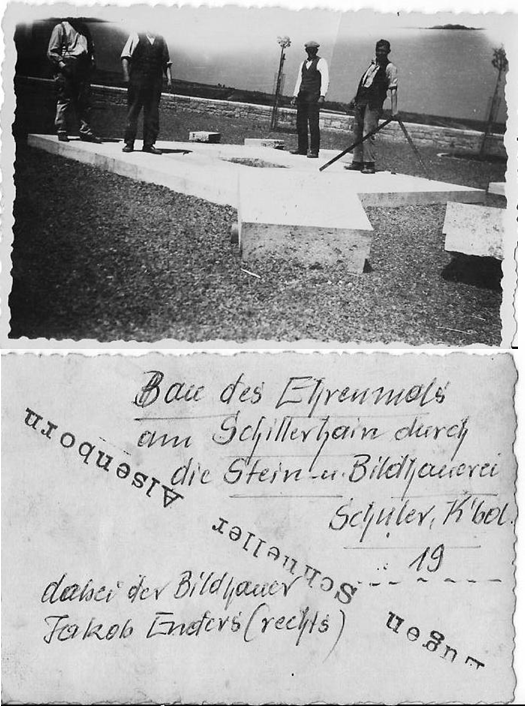 Bau des Ehrenmals
am Schillerhain durch
die Stein- u. Bildhauerei
Schuler, K'bol.
19
dabei der Bildhauer
Jakob Enders (rechts)
Eugen Schueller Alsenborn